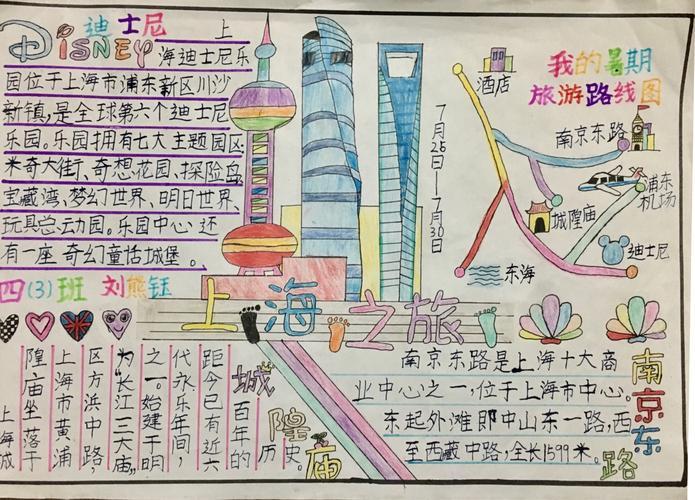 迪士尼
DisNEY
上
海迪士尼乐
园位于上海市浦东新区川沙
新镇,是全球第六个迪士尼
乐园。乐园拥有七大主题园区:
米奇大街、奇想花园、探险岛、
宝藏湾、梦幻世界、明日世界、
玩具总动园。乐园中心还
有一座奇幻童话城堡。
四(3)班 刘熊钰
7月25日—7月30日
我的暑期
旅游路线图
酒店
南京东路
浦东
机场
城隍庙
迪士尼
东海
上海之旅
城隍庙
上海城
隍庙坐落于
上海市黄浦
区方浜中路,
为“长江三大庙”
之一。始建于明
代永乐年间,
距今已有近六
百年的
历史。
南京东路
南京东路是上海十大商
业中心之一,位于上海市中心。
东起外滩即中山东一路,西
至西藏中路,全长1599米。